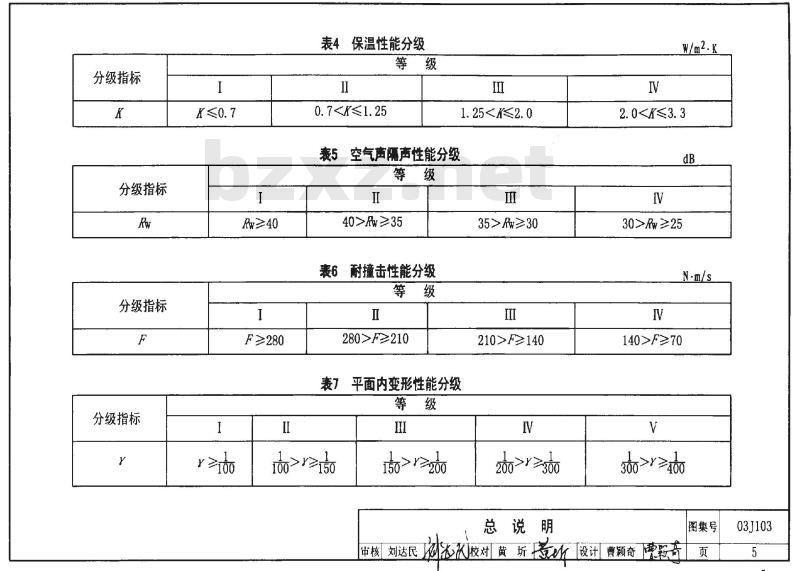 表4 保温性能分级
W/m²·K
分级指标 等 级
I II III IV
K K≤0.7 0.7<K≤1.25 1.25<K≤2.0 2.0<K≤3.3
表5 空气声隔声性能分级
dB
分级指标 等 级
I II III IV
Rw Rw≥40 40>Rw≥35 35>Rw≥30 30>Rw≥25
表6 耐撞击性能分级
N·m/s
分级指标 等 级
I II III IV
F F≥280 280>F≥210 210>F≥140 140>F≥70
表7 平面内变形性能分级
分级指标 等 级
I II III IV V
γ γ≥1/100 1/100>γ≥1/150 1/150>γ≥1/200 1/200>γ≥1/300 1/300>γ≥1/400
bzxz.net
总 说 明 图集号 03J103
审核 刘达民 刘达民 校对 黄 圻 黄圻 设计 曹颖奇 曹颖奇 页 5